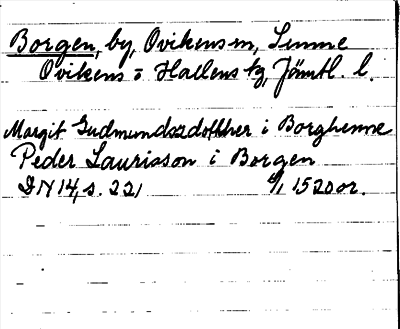 Borgen, by, Ovikens sn, Sunne
Ovikens o Hallens tg, Jämtl. l.
Margit Gudmundzdotther i Borghenne
Peder Laurisson i Borgen
DN 14, s. 221 6/1 1520 or.